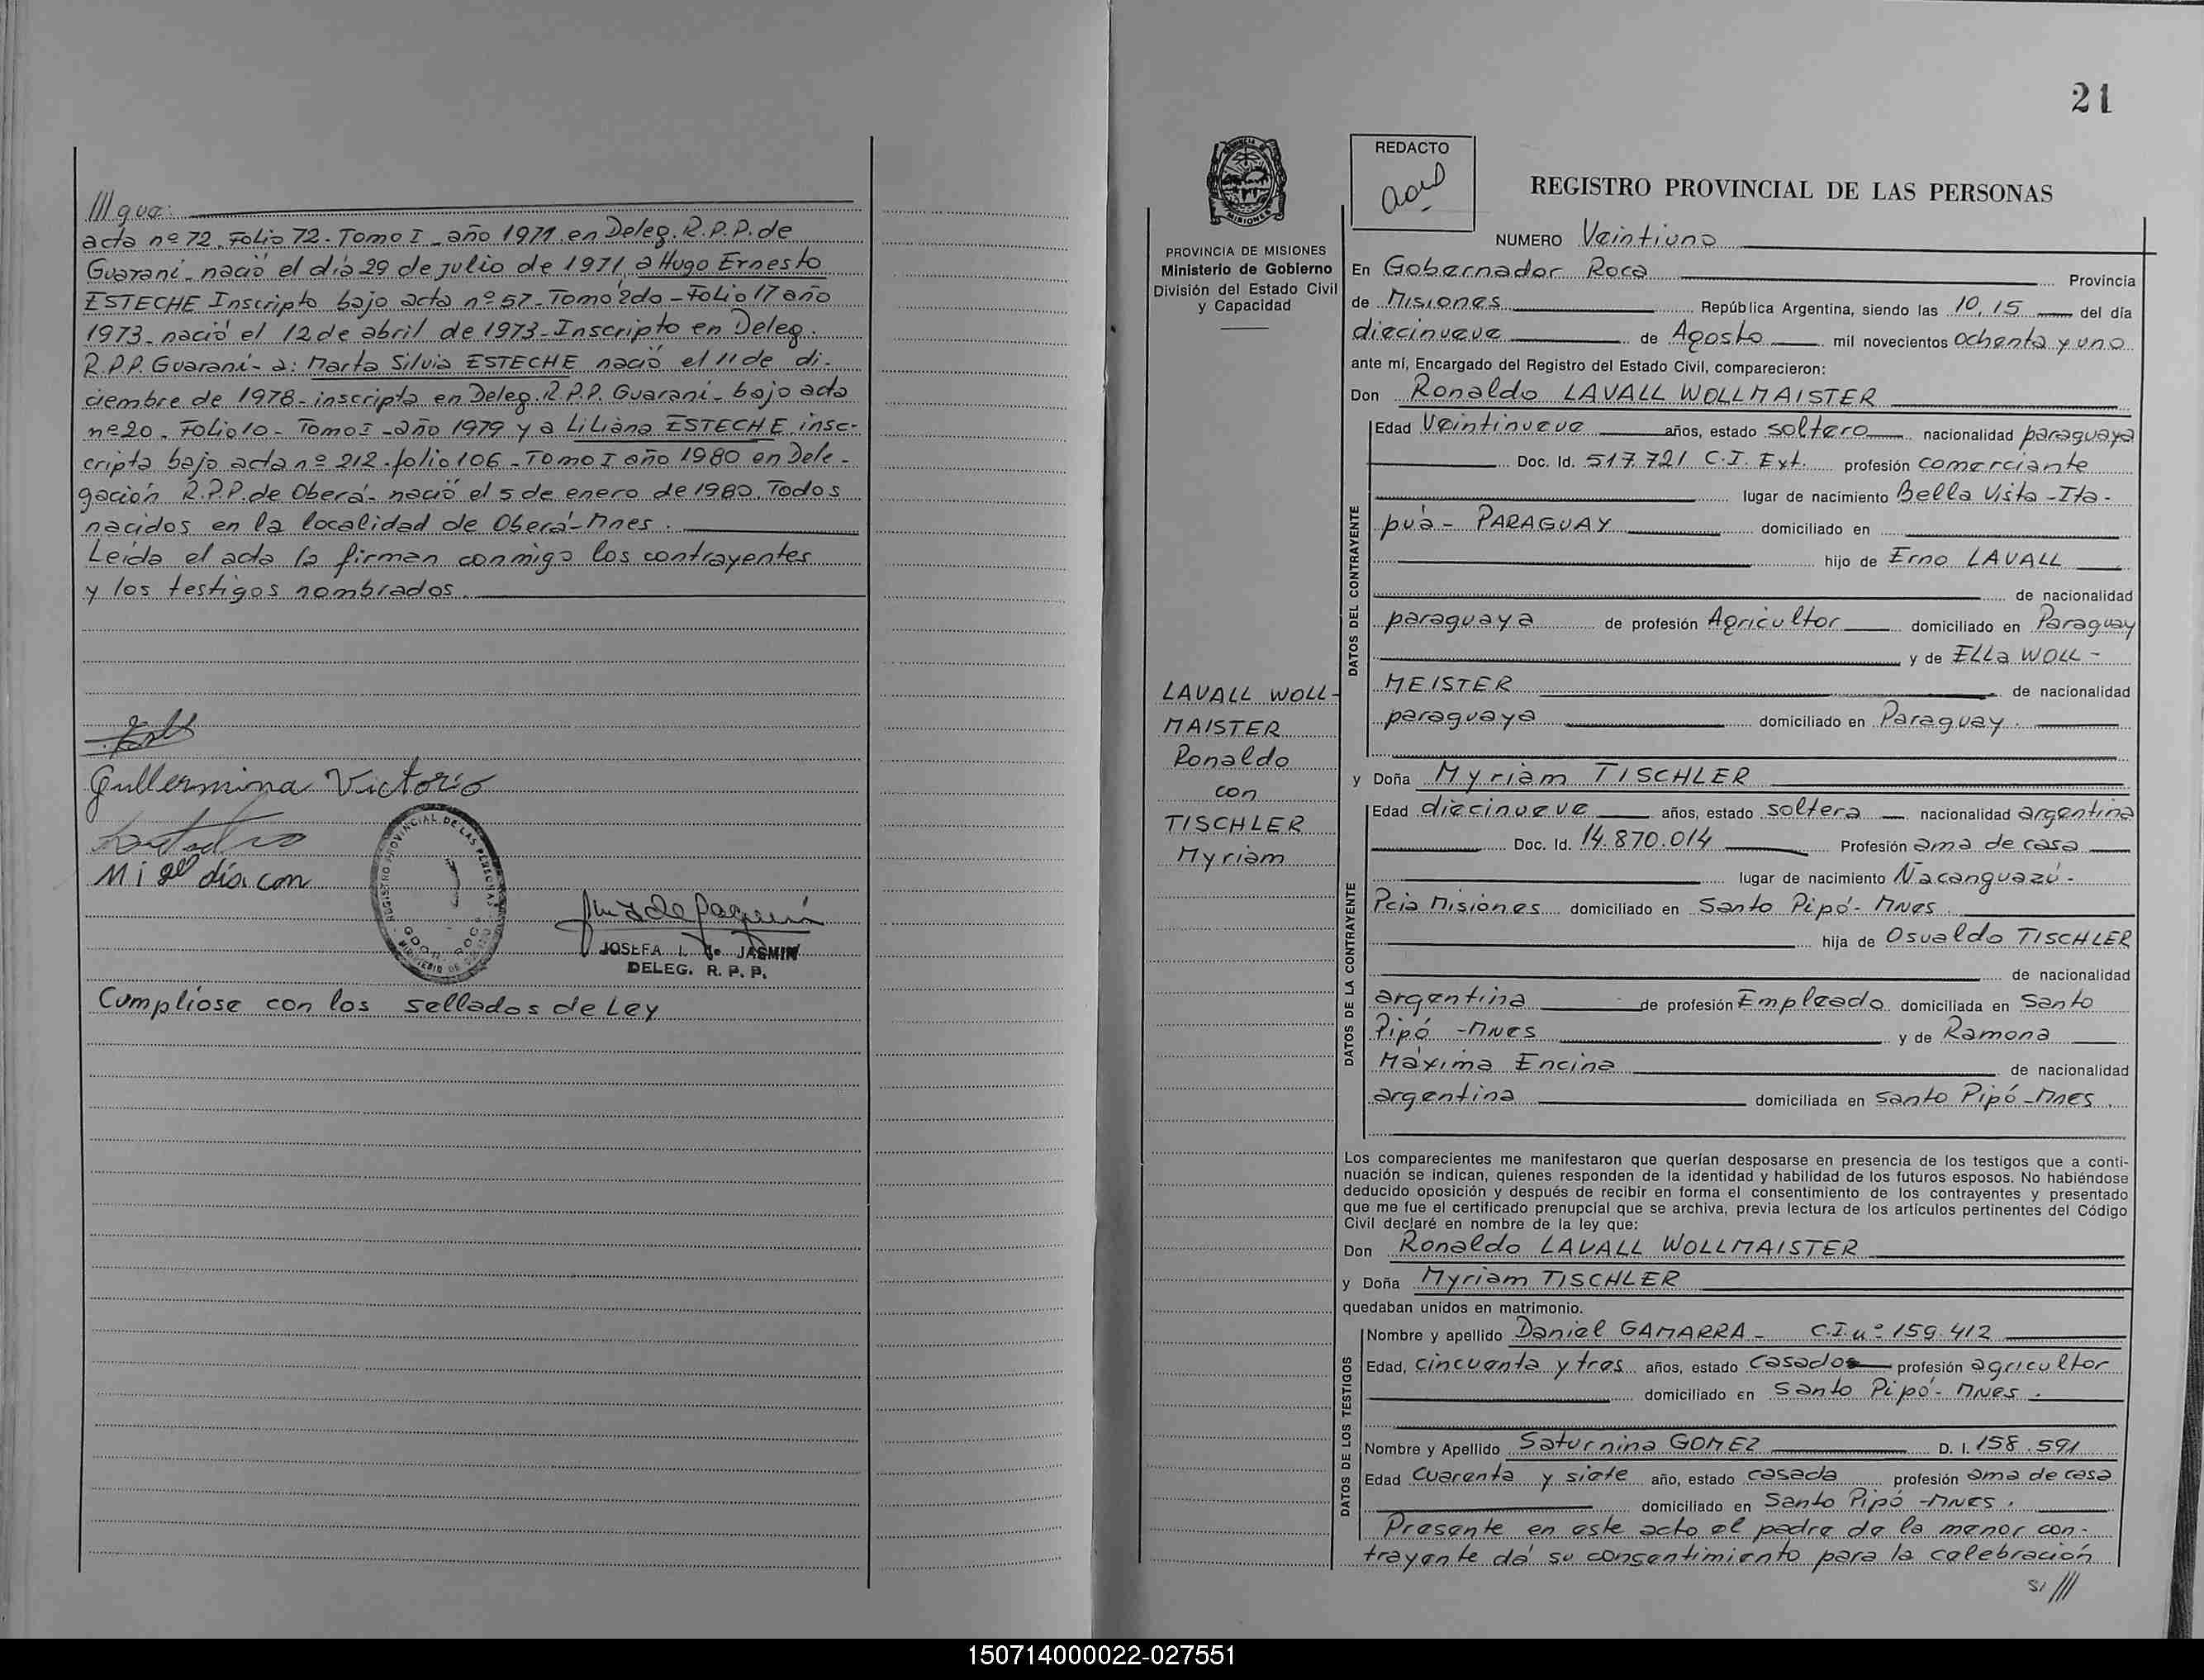 /// gua:
acta nº 72. Folio 72. Tomo I _ año 1971 en Deleg. R.P.P. de
Guaraní - nació el día 29 de julio de 1971, a Hugo Ernesto
ESTECHE Inscripto bajo acta nº 57 - Tomo 2do - Folio 17 año
1973 - nació el 12 de abril de 1973 - Inscripto en Deleg.
R.P.P. Guaraní - a: Marta Silvia ESTECHE nació el 11 de di-
ciembre de 1978 - inscripta en Deleg. R.P.P. Guaraní - bajo acta
nº 20 - Folio 10 - Tomo I - año 1979 y a Liliana ESTECHE ins-
cripta bajo acta nº 212 - folio 106 - Tomo I año 1980 en Dele-
gación R.P.P. de Oberá - nació el 5 de enero de 1980. Todos
nacidos en la localidad de Oberá - Mnes.
Leída el acta la firman conmigo los contrayentes
y los testigos nombrados.
Gullermina Victorio
REGISTRO PROVINCIAL DE LAS PERSONAS
GDOR. ROCA
JOSEFA I. de JASMIN
DELEG. R. P. P.
Cumplióse con los sellados de Ley
21
REDACTO
REGISTRO PROVINCIAL DE LAS PERSONAS
PROVINCIA DE MISIONES
Ministerio de Gobierno
División del Estado Civil
y Capacidad
NUMERO Veintiuno
En Gobernador Roca Provincia
de Misiones República Argentina, siendo las 10,15 del día
diecinueve de Agosto mil novecientos ochenta y uno
ante mí, Encargado del Registro del Estado Civil, comparecieron:
Don Ronaldo LAVALL WOLLMAISTER
DATOS DEL CONTRAYENTE
Edad Veintinueve años, estado soltero nacionalidad paraguaya
Doc. Id. 517.721 C.I. Ext. profesión comerciante
lugar de nacimiento Bella Vista - Ita-
puà - PARAGUAY domiciliado en
hijo de Erno LAVALL
de nacionalidad
paraguaya de profesión Agricultor domiciliado en Paraguay
y de Ella WOLL-
MEISTER de nacionalidad
paraguaya domiciliado en Paraguay.
LAVALL WOLL-
MAISTER
Ronaldo
con
TISCHLER
Myriam
y Doña Myriam TISCHLER
DATOS DE LA CONTRAYENTE
Edad diecinueve años, estado soltera nacionalidad argentina
Doc. Id. 14.870.014 Profesión ama de casa
lugar de nacimiento Ñacanguazú -
Pcia Misiones domiciliado en Santo Pipó - Mnes.
hija de Osvaldo TISCHLER
de nacionalidad
argentina de profesión Empleado domiciliada en Santo
Pipó - Mnes y de Ramona
Máxima Encina de nacionalidad
argentina domiciliada en Santo Pipó - Mnes.
Los comparecientes me manifestaron que querían desposarse en presencia de los testigos que a conti-
nuación se indican, quienes responden de la identidad y habilidad de los futuros esposos. No habiéndose
deducido oposición y después de recibir en forma el consentimiento de los contrayentes y presentado
que me fue el certificado prenupcial que se archiva, previa lectura de los artículos pertinentes del Código
Civil declaré en nombre de la ley que:
Don Ronaldo LAVALL WOLLMAISTER
y Doña Myriam TISCHLER
quedaban unidos en matrimonio.
DATOS DE LOS TESTIGOS
Nombre y apellido Daniel GAMARRA - C.I. nº 159.412
Edad, cincuenta y tres años, estado casado profesión agricultor
domiciliado en Santo Pipó - Mnes.
Nombre y Apellido Saturnina GOMEZ D. I. 158.591
Edad Cuarenta y siete año, estado casada profesión ama de casa
domiciliado en Santo Pipó - Mnes.
Presente en este acto el padre de la menor con-
trayente dá su consentimiento para la celebración
S/ ///
150714000022-027551